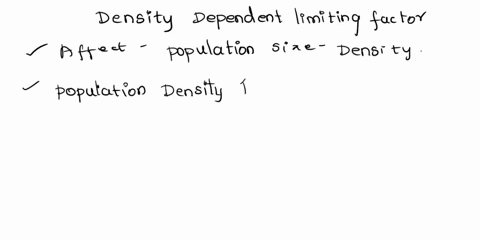 Density Dependent limiting factor
✓ Affect - population size - Density.
✓ population Density